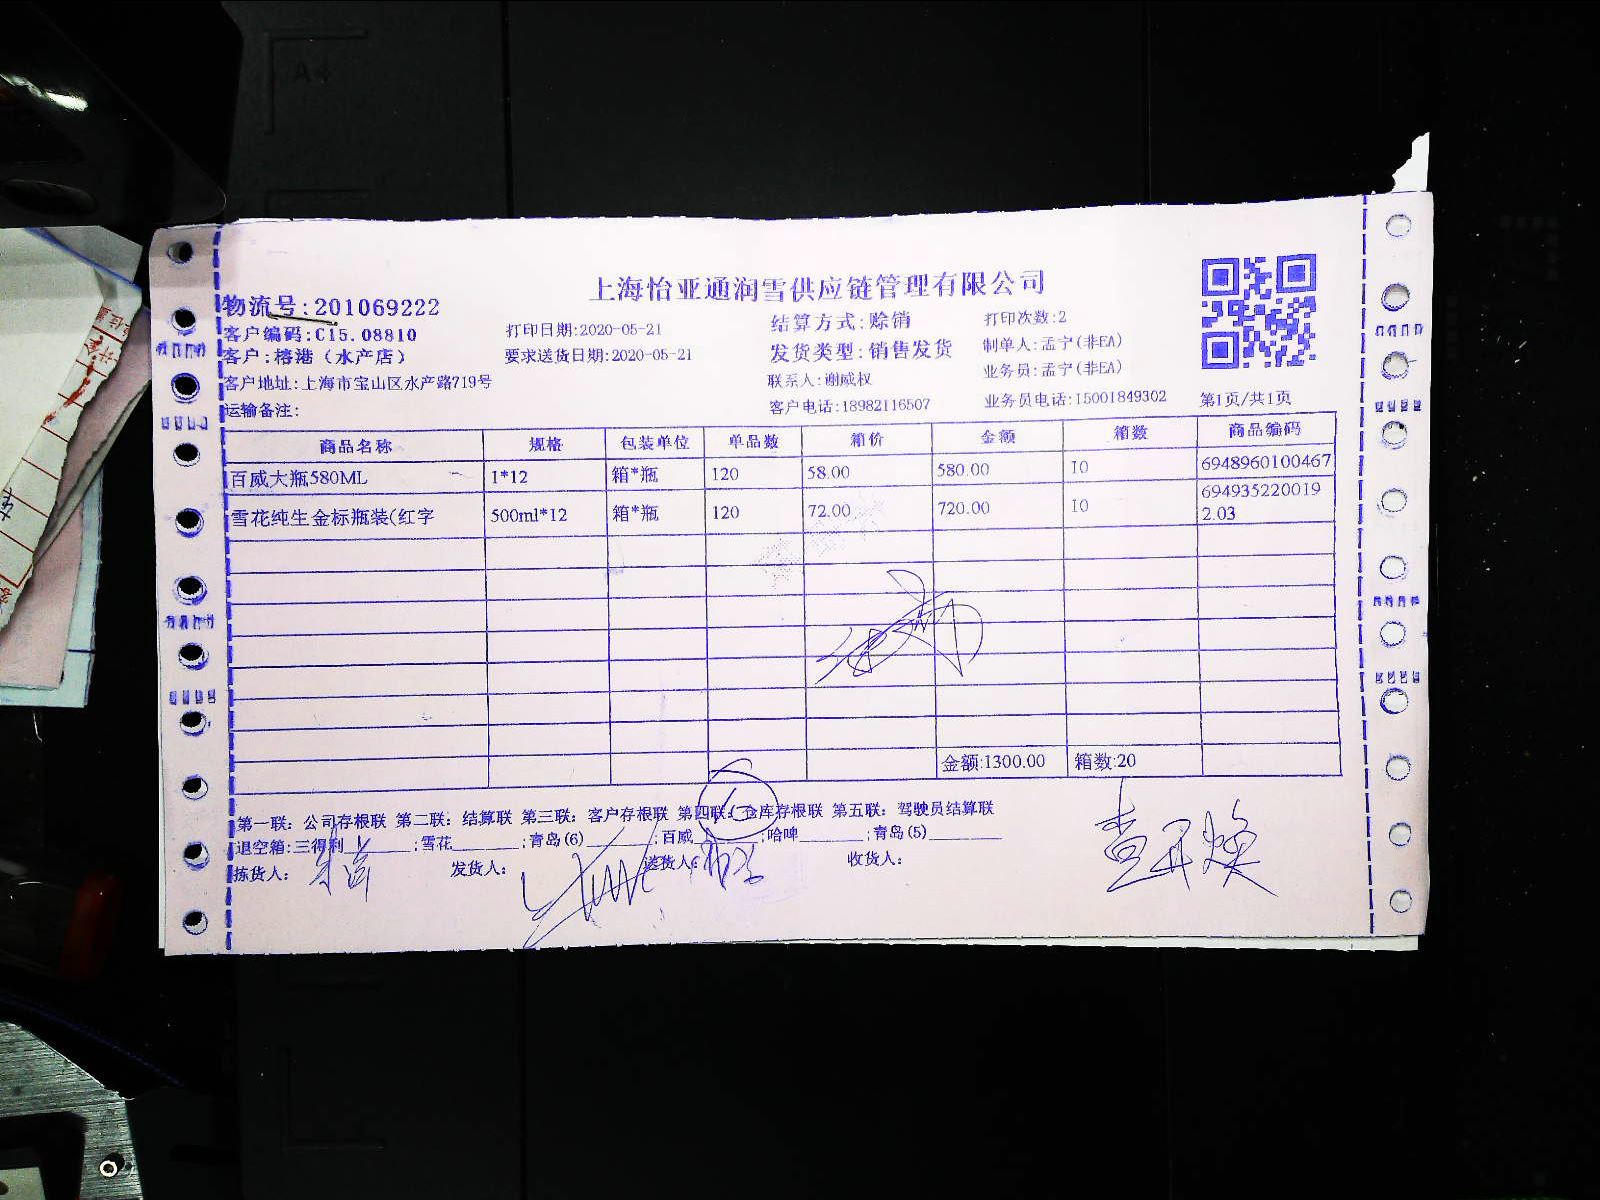 上海怡亚通润雪供应链管理有限公司
物流号:201069222
客户编码:C15.08810 打印日期:2020-05-21 结算方式:赊销 打印次数:2
客户:榕港（水产店） 要求送货日期:2020-05-21 发货类型:销售发货 制单人:孟宁(非EA)
客户地址:上海市宝山区水产路719号 联系人:谢威权 业务员:孟宁(非EA)
运输备注: 客户电话:18982116507 业务员电话:15001849302 第1页/共1页
商品名称 规格 包装单位 单品数 箱价 金额 箱数 商品编码
百威大瓶580ML 1*12 箱*瓶 120 58.00 580.00 10 6948960100467
雪花纯生金标瓶装(红字 500ml*12 箱*瓶 120 72.00 720.00 10 694935220019
2.03
金额:1300.00 箱数:20
第一联：公司存根联 第二联：结算联 第三联：客户存根联 第四联：仓库存根联 第五联：驾驶员结算联
退空箱:三得利______;雪花______;青岛(6)______;百威______;哈啤______;青岛(5)______
拣货人: 发货人: 送货人: 收货人: